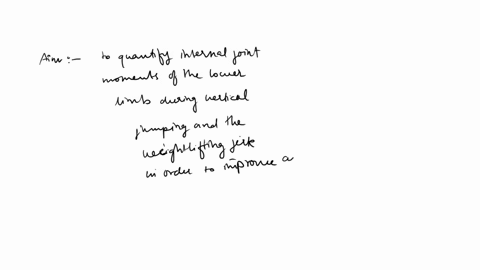 Aim :- to quantify internal joint
moments of the lower
limb during vertical
jumping and the
weightlifting jerk
in order to improve a